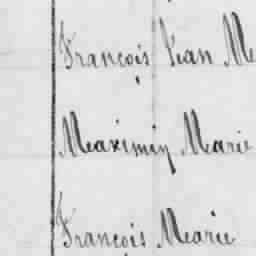 François Jean Me
Meaximin Marie
François Mearie